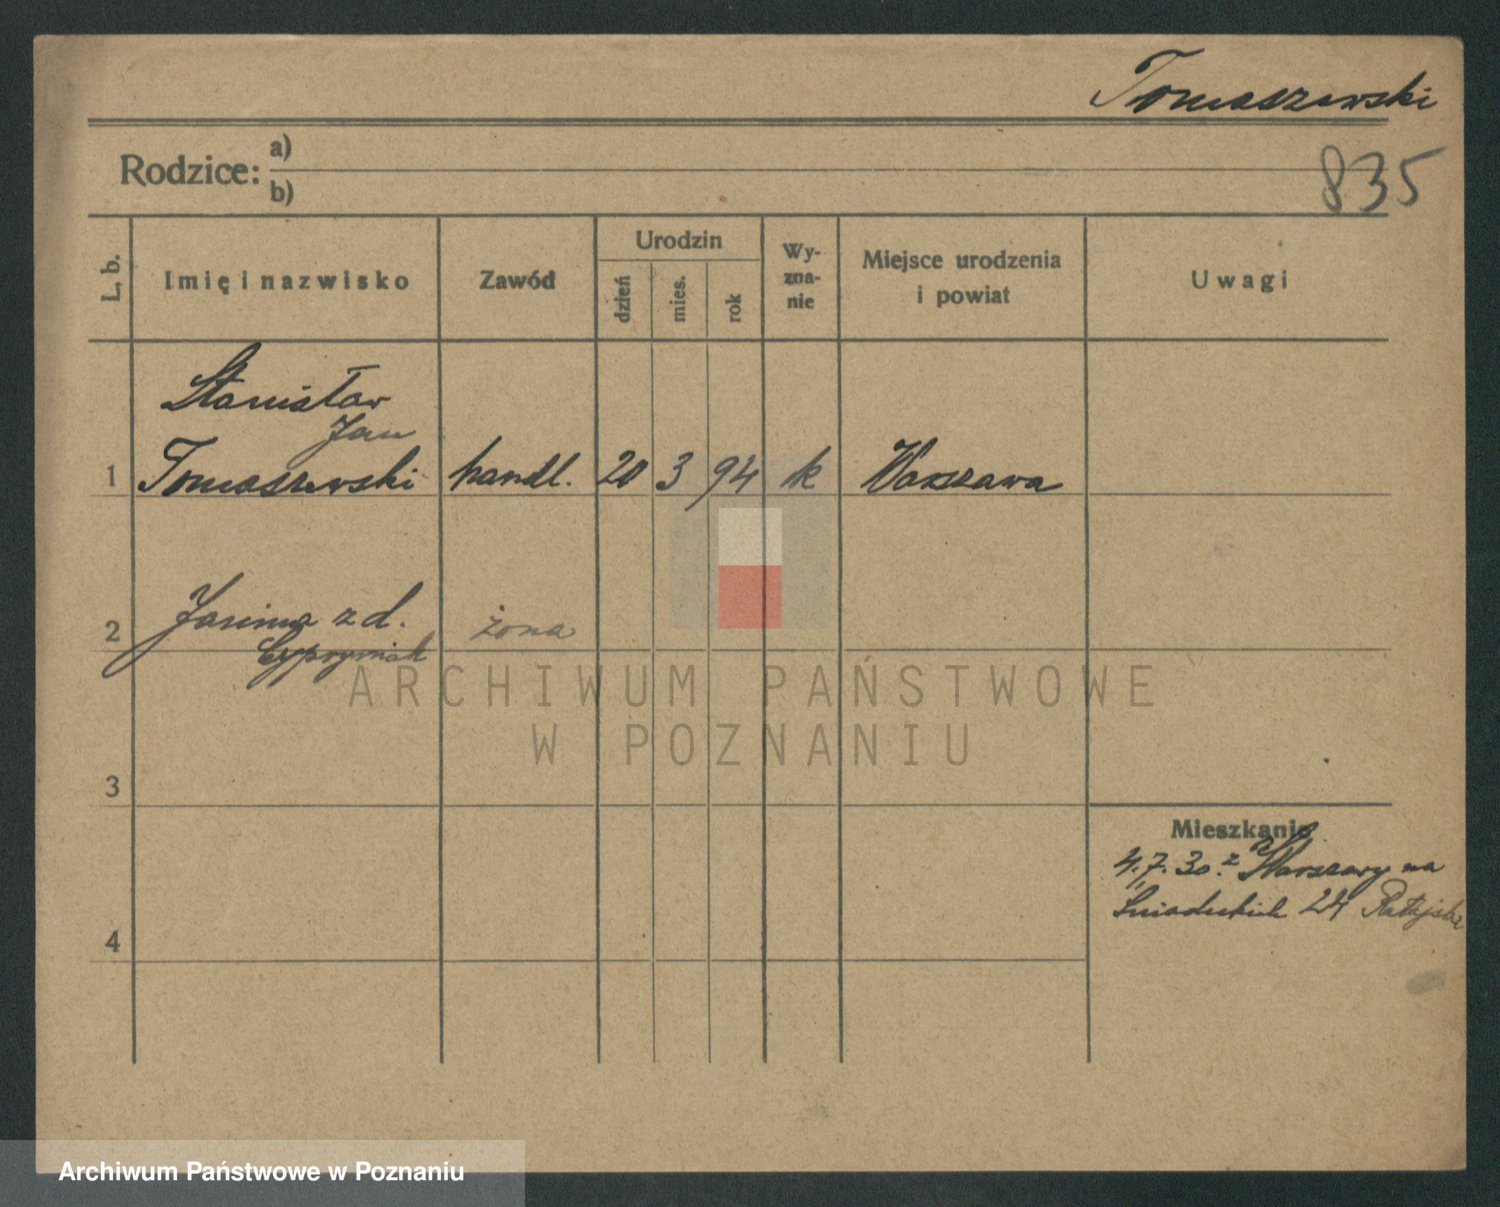 Tomaszewski
Rodzice: a)
b)
835
L. b.
Imię i nazwisko
Zawód
Urodzin
dzień
mies.
rok
Wy-
zna-
nie
Miejsce urodzenia
i powiat
Uwagi
Stanisław
Jan
1 Tomaszewski handl. 20 3 94 k Warszawa
2 Janina z d. żona
Cyprymiak
ARCHIWUM PAŃSTWOWE
W POZNANIU
3
Mieszkanie
4.7.30. z Warszawy na
Śniadeckich 24
4
Archiwum Państwowe w Poznaniu